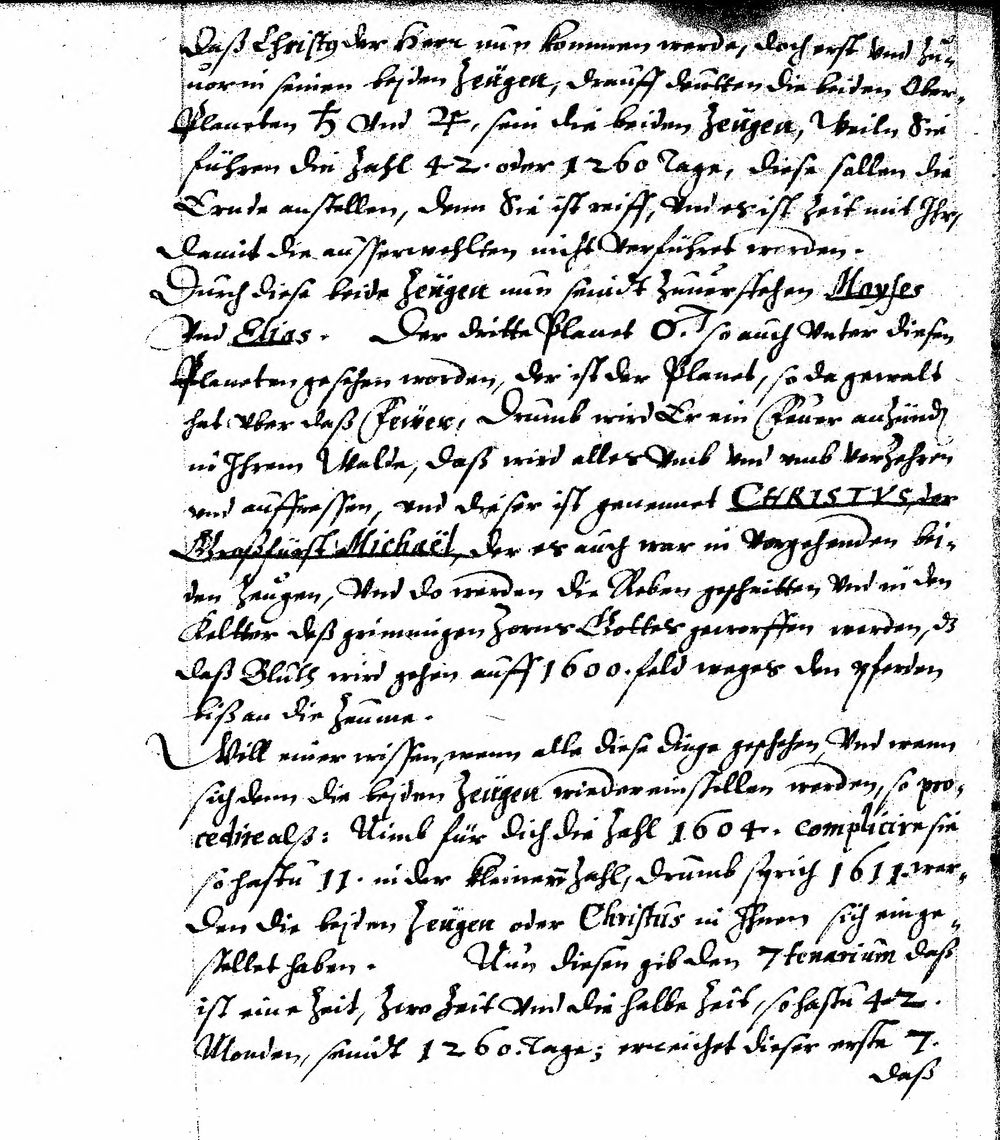 daß Christꝰ der Herr nun kommen werde, doch erst vnd zu-
uor in seinen beyden Zeügen, drauff deutten die beiden Ober-
Planeten ♄ vnd ♃, sein die beiden Zeügen, Weiln Sie
führen die Zahl 42. oder 1260 Tage, diese sollen die
Ernde anstellen, denn Sie ist reiff, vnd es ist Zeit mit Ihr,
damit die ausserwehlten nicht verführet werden.
Durch diese beide Zeügen nun seindt zuuerstehen Moyses
vnd Elias. Der dritte Planet ♂. so auch vnter diesen
Planeten gesehen worden, der ist der Planet, so da gewalt
hat vber daß Feüer, Drumb wird Er ein Feuer anzünd
in Ihrem Walde, daß wird alles vmb vnd vmb verzehren
vnd auffressen, vnd dieser ist genennet CHRISTVS, der
Großfürst Michaël, der es auch war in vorgehenden bei-
den Zeugen, Vnd do werden die Reben geschnitten vnd in den
Keltter deß grimmigen Zorns Gottes geworffen werden, dz
daß Bluth wird gehen auff 1600. feld weges den pferden
biß an die Zeume.
Will einer wissen, wenn alle diese dinge geschehen, Vnd wann
sich denn die beyden Zeügen wieder einstellen werden, so pro-
cedire alß: Nimb für dich die Zahl 1604. complicire sie
so hastu 11. in der kleinern Zahl, drumb sprich 1611. wer-
den die beyden Zeügen oder Christus in Ihnen sich einge-
stellet haben. Nun diesen gib den 7tenarium daß
ist eine Zeit, zwo Zeit vnd die halbe Zeit, so hastu 42.
Monden, seindt 1260. Tage; erreichet dieser erste 7.
daß